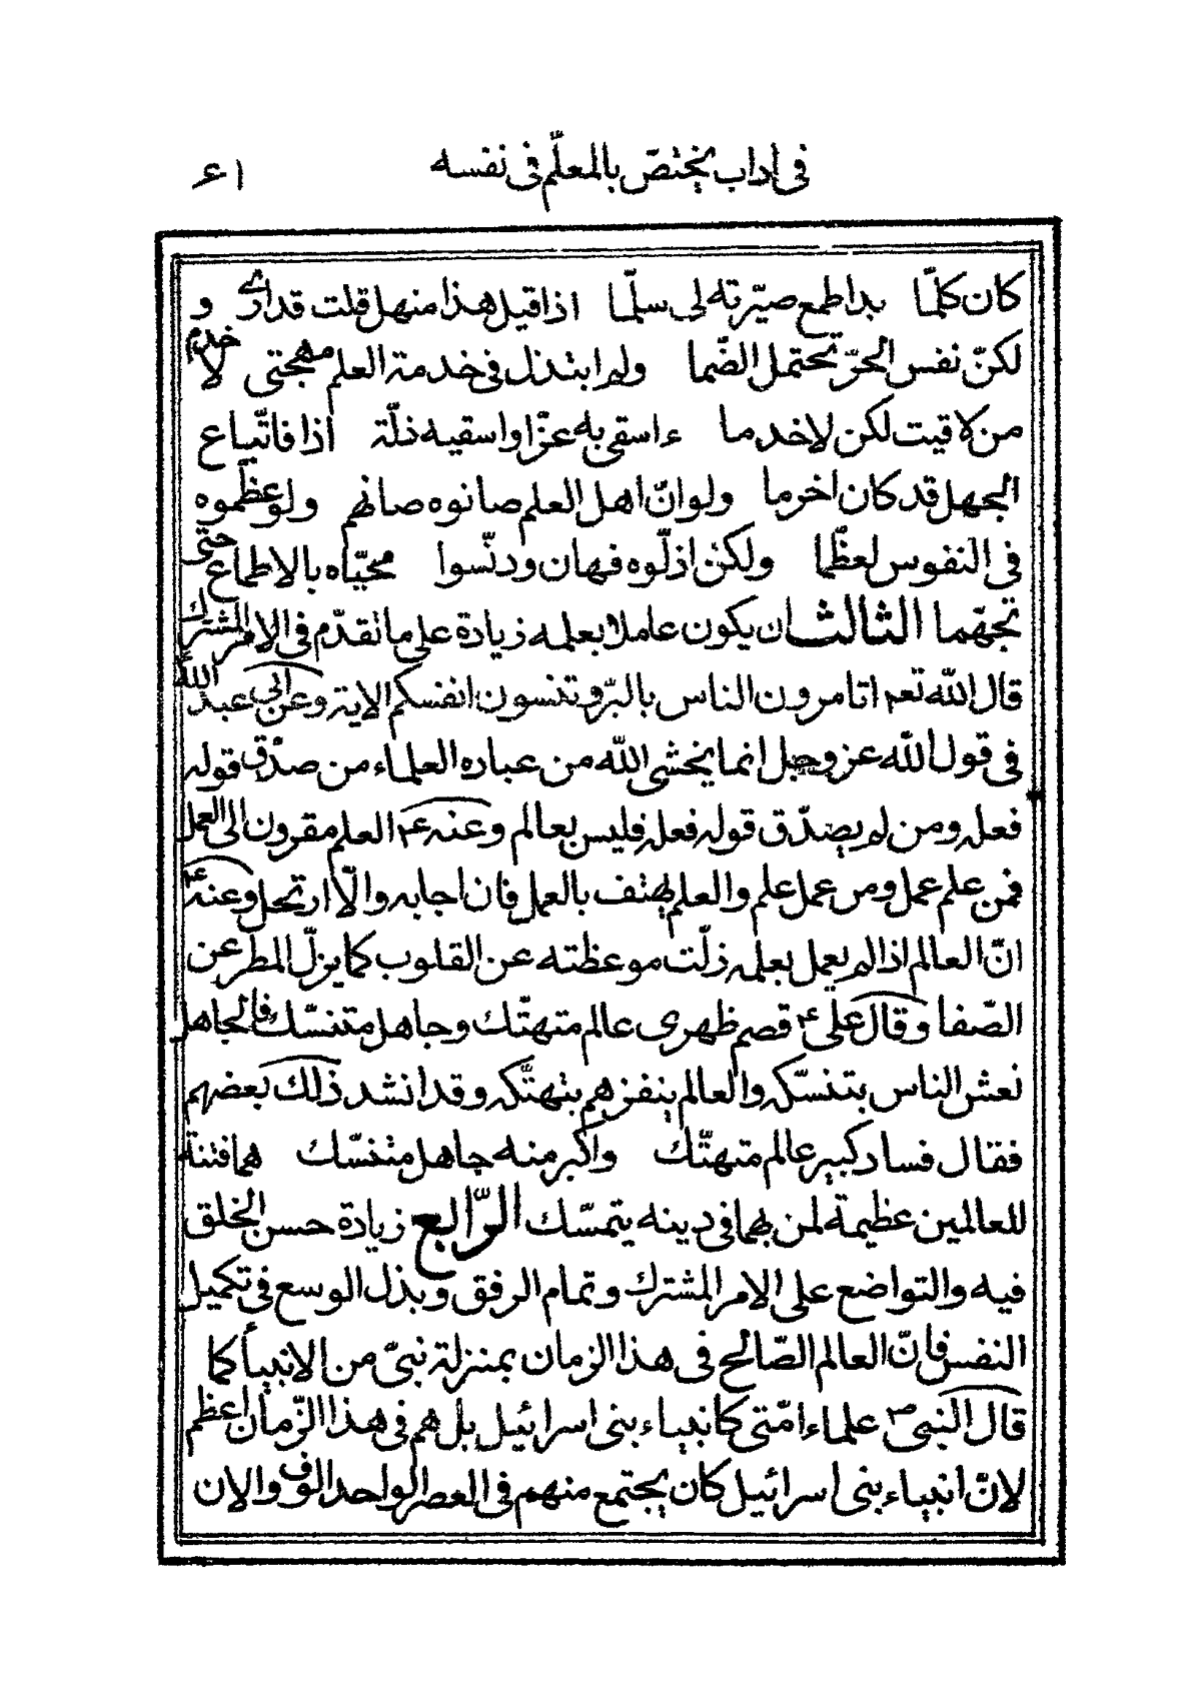 في اداب يختصّ بالمعلّم في نفسه ٦١
كان كلّما بدا طمع صيّرته لى سلّما اذا قيل هذا منهل قلت قد ارى و
لكنّ نفس الحرّ تحتمل الضّما ولم ابتذل فى خدمة العلم مهجتى لاخدم
من لاقيت لكن لاخدما ءاسقى به عزّا واسقيه ذلّة اذا فاتّباع
الجهل قد كان اخرما ولو انّ اهل العلم صانوه صانهم ولو عظّموه
فى النفوس لعظّما ولكن اذلّوه فهان ودنّسوا محيّاه بالاطماع حتى
تجهّما الثالث ان يكون عاملا بعلمه زيادة على ما تقدّم فى الامر المشترك
قال الله تعم اتامرون الناس بالبرّ وتنسون انفسكم الاية وعن ابى عبد الله
فى قول الله عز وجل انما يخشى الله من عباده العلماء من صدّق قوله
فعله ومن لم يصدّق قوله فعله فليس بعالم وعنه ع العلم مقرون الى العمل
فمن علم عمل ومن عمل علم والعلم يهتف بالعمل فان اجابه والّا ارتحل وعنه ع
انّ العالم اذا لم يعمل بعلمه زلّت موعظته عن القلوب كما يزلّ المطر عن
الصّفا وقال على ع قصم ظهرى عالم متهتّك وجاهل متنسّك فالجاهل
نعش الناس بتنسّكه والعالم ينفرهم بتهتّكه وقد انشد ذلك بعضهم
فقال فساد كبير عالم متهتّك واكبر منه جاهل متنسّك هما فتنة
للعالمين عظيمة لمن بهما فى دينه يتمسّك الرّابع زيادة حسن الخلق
فيه والتواضع على الامر المشترك وتمام الرفق وبذل الوسع فى تكميل
النفس فانّ العالم الصّالح فى هذا الزمان بمنزلة نبىّ من الانبياء كما
قال النبى ص علماء امّتى كانبياء بنى اسرائيل بل هم فى هذا الزّمان اعظم
لانّ انبياء بنى اسرائيل كان يجتمع منهم فى العصر الواحد الوف والان